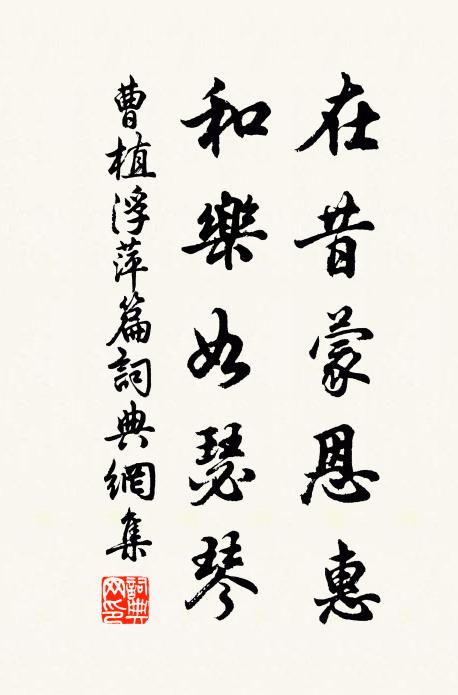 在昔蒙恩惠
和樂如瑟琴
曹植浮萍篇詞典網集
詞典网印